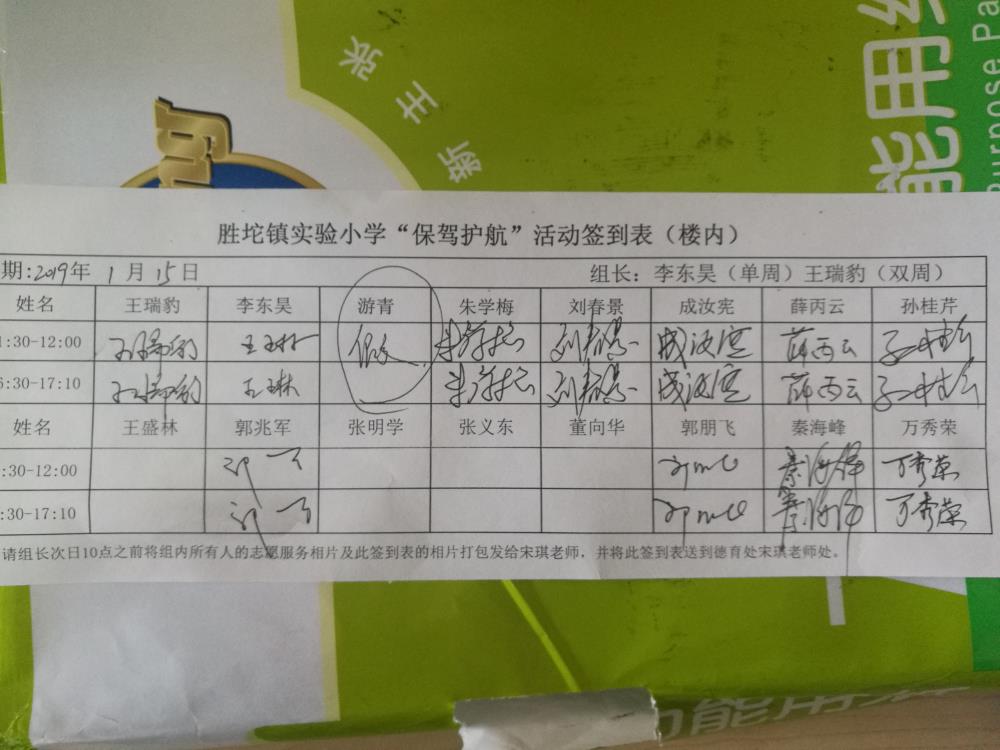 新主张
能用
urpose Pa
胜坨镇实验小学“保驾护航”活动签到表（楼内）
期:2019年 1 月 15日 组长：李东昊（单周）王瑞豹（双周）
姓名 王瑞豹 李东昊 游青 朱学梅 刘春景 成汝宪 薛丙云 孙桂芹
:30-12:00 王瑞豹 朱学梅 刘春景 成汝宪 薛丙云 孙桂芹
:30-17:10 王瑞豹 王琳 朱学梅 刘春景 成汝宪 薛丙云 孙桂芹
姓名 王盛林 郭兆军 张明学 张义东 董向华 郭朋飞 秦海峰 万秀荣
:30-12:00 秦海峰 万秀荣
:30-17:10 秦海峰 万秀荣
请组长次日10点之前将组内所有人的志愿服务相片及此签到表的相片打包发给宋琪老师，并将此签到表送到德育处宋琪老师处。
功能用